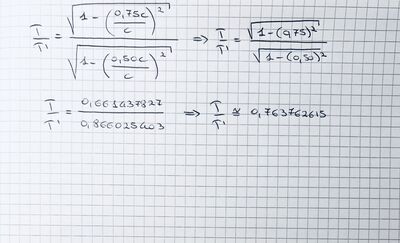 T/T' = √(1 - (0,75c/c)²) / √(1 - (0,50c/c)²) ⇒ T/T' = √(1 - (0,75)²) / √(1 - (0,50)²)
T/T' = 0,661437827 / 0,866025403 ⇒ T/T' ≅ 0,763762615